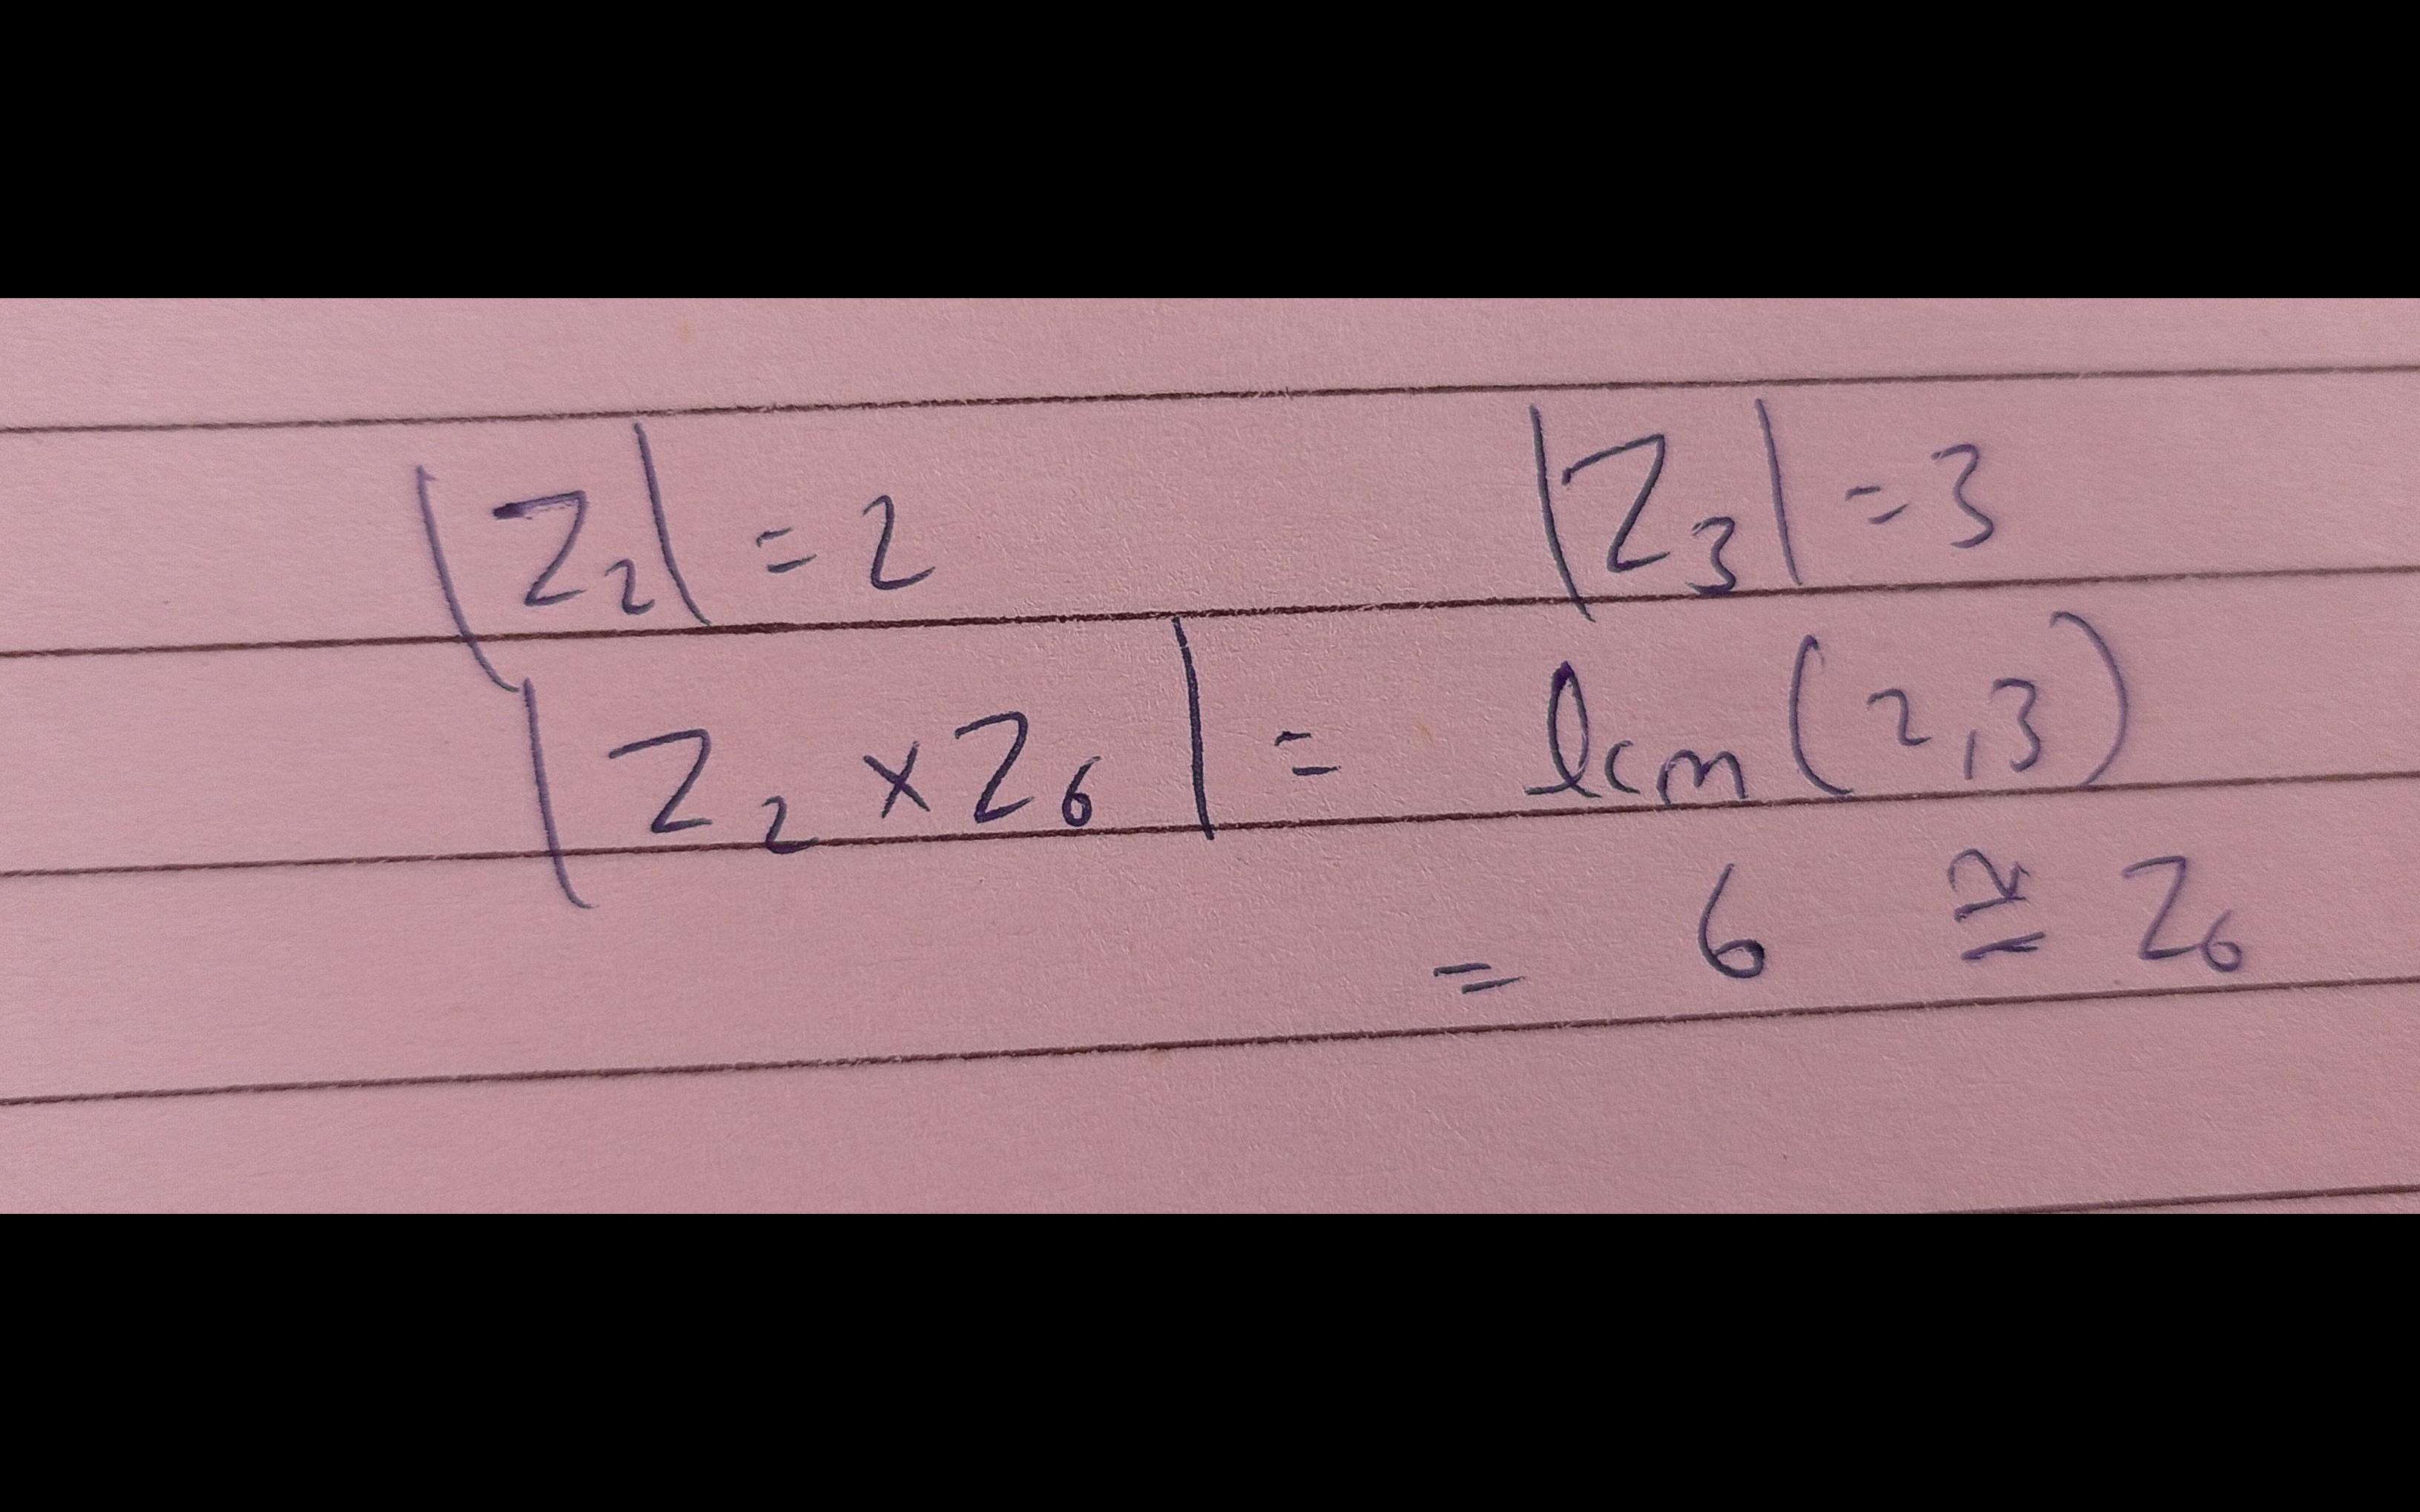 |Z₂| = 2 |Z₃| = 3
|Z₂ × Z₆| = lcm(2,3)
= 6 ≅ Z₆